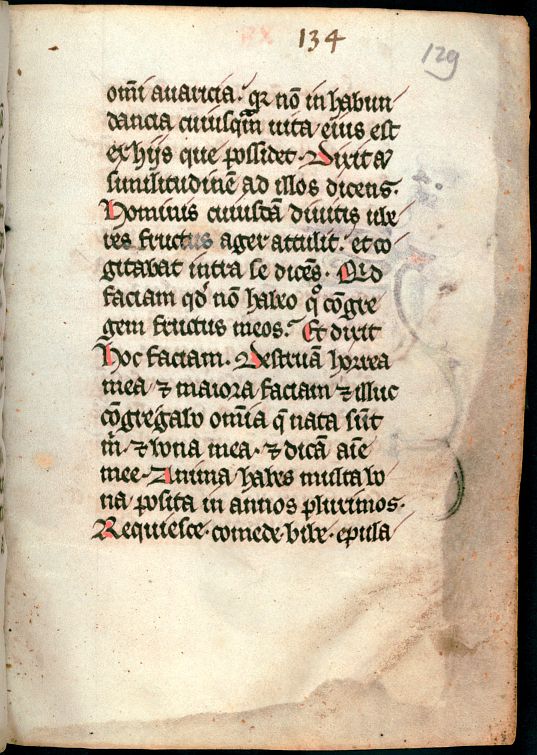 134
129
om̄i auaricia. qr nō in habun
dancia cuiusq̄m uita eius est
ex hijs que possidet. Dixit a
similitudinē ad illos dicens.
Hominis cuiusdā diuitis ube
res fructus ager attulit. et co
gitabat intra se dicēs. Qid
faciam qd̓ nō habeo qͦ cōgre
gem fructus meos. Et dixit
Hoc faciam. Destruā horrea
mea ⁊ maiora faciam ⁊ illuc
cōgregabo om̄ia q̄ nata sūt
m̄. ⁊ bona mea. ⁊ dicā aīe
mee. Anima habes multa bo
na posita in annos plurimos.
Requiesce. comede. bibe. epula